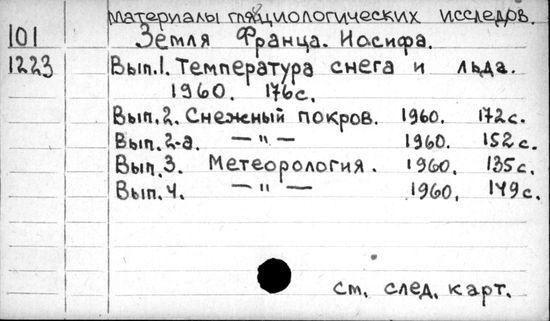 Материалы гляциологических исследов.
101 Земля Франца-Иосифа.
1223 Вып.1. Температура снега и льда.
1960. 176с.
Вып.2. Снежный покров. 1960. 172с.
Вып.2-а. — " — 1960. 152с.
Вып.3. Метеорология. 1960. 135с.
Вып.4. — " — 1960. 149с.
см. след. карт.